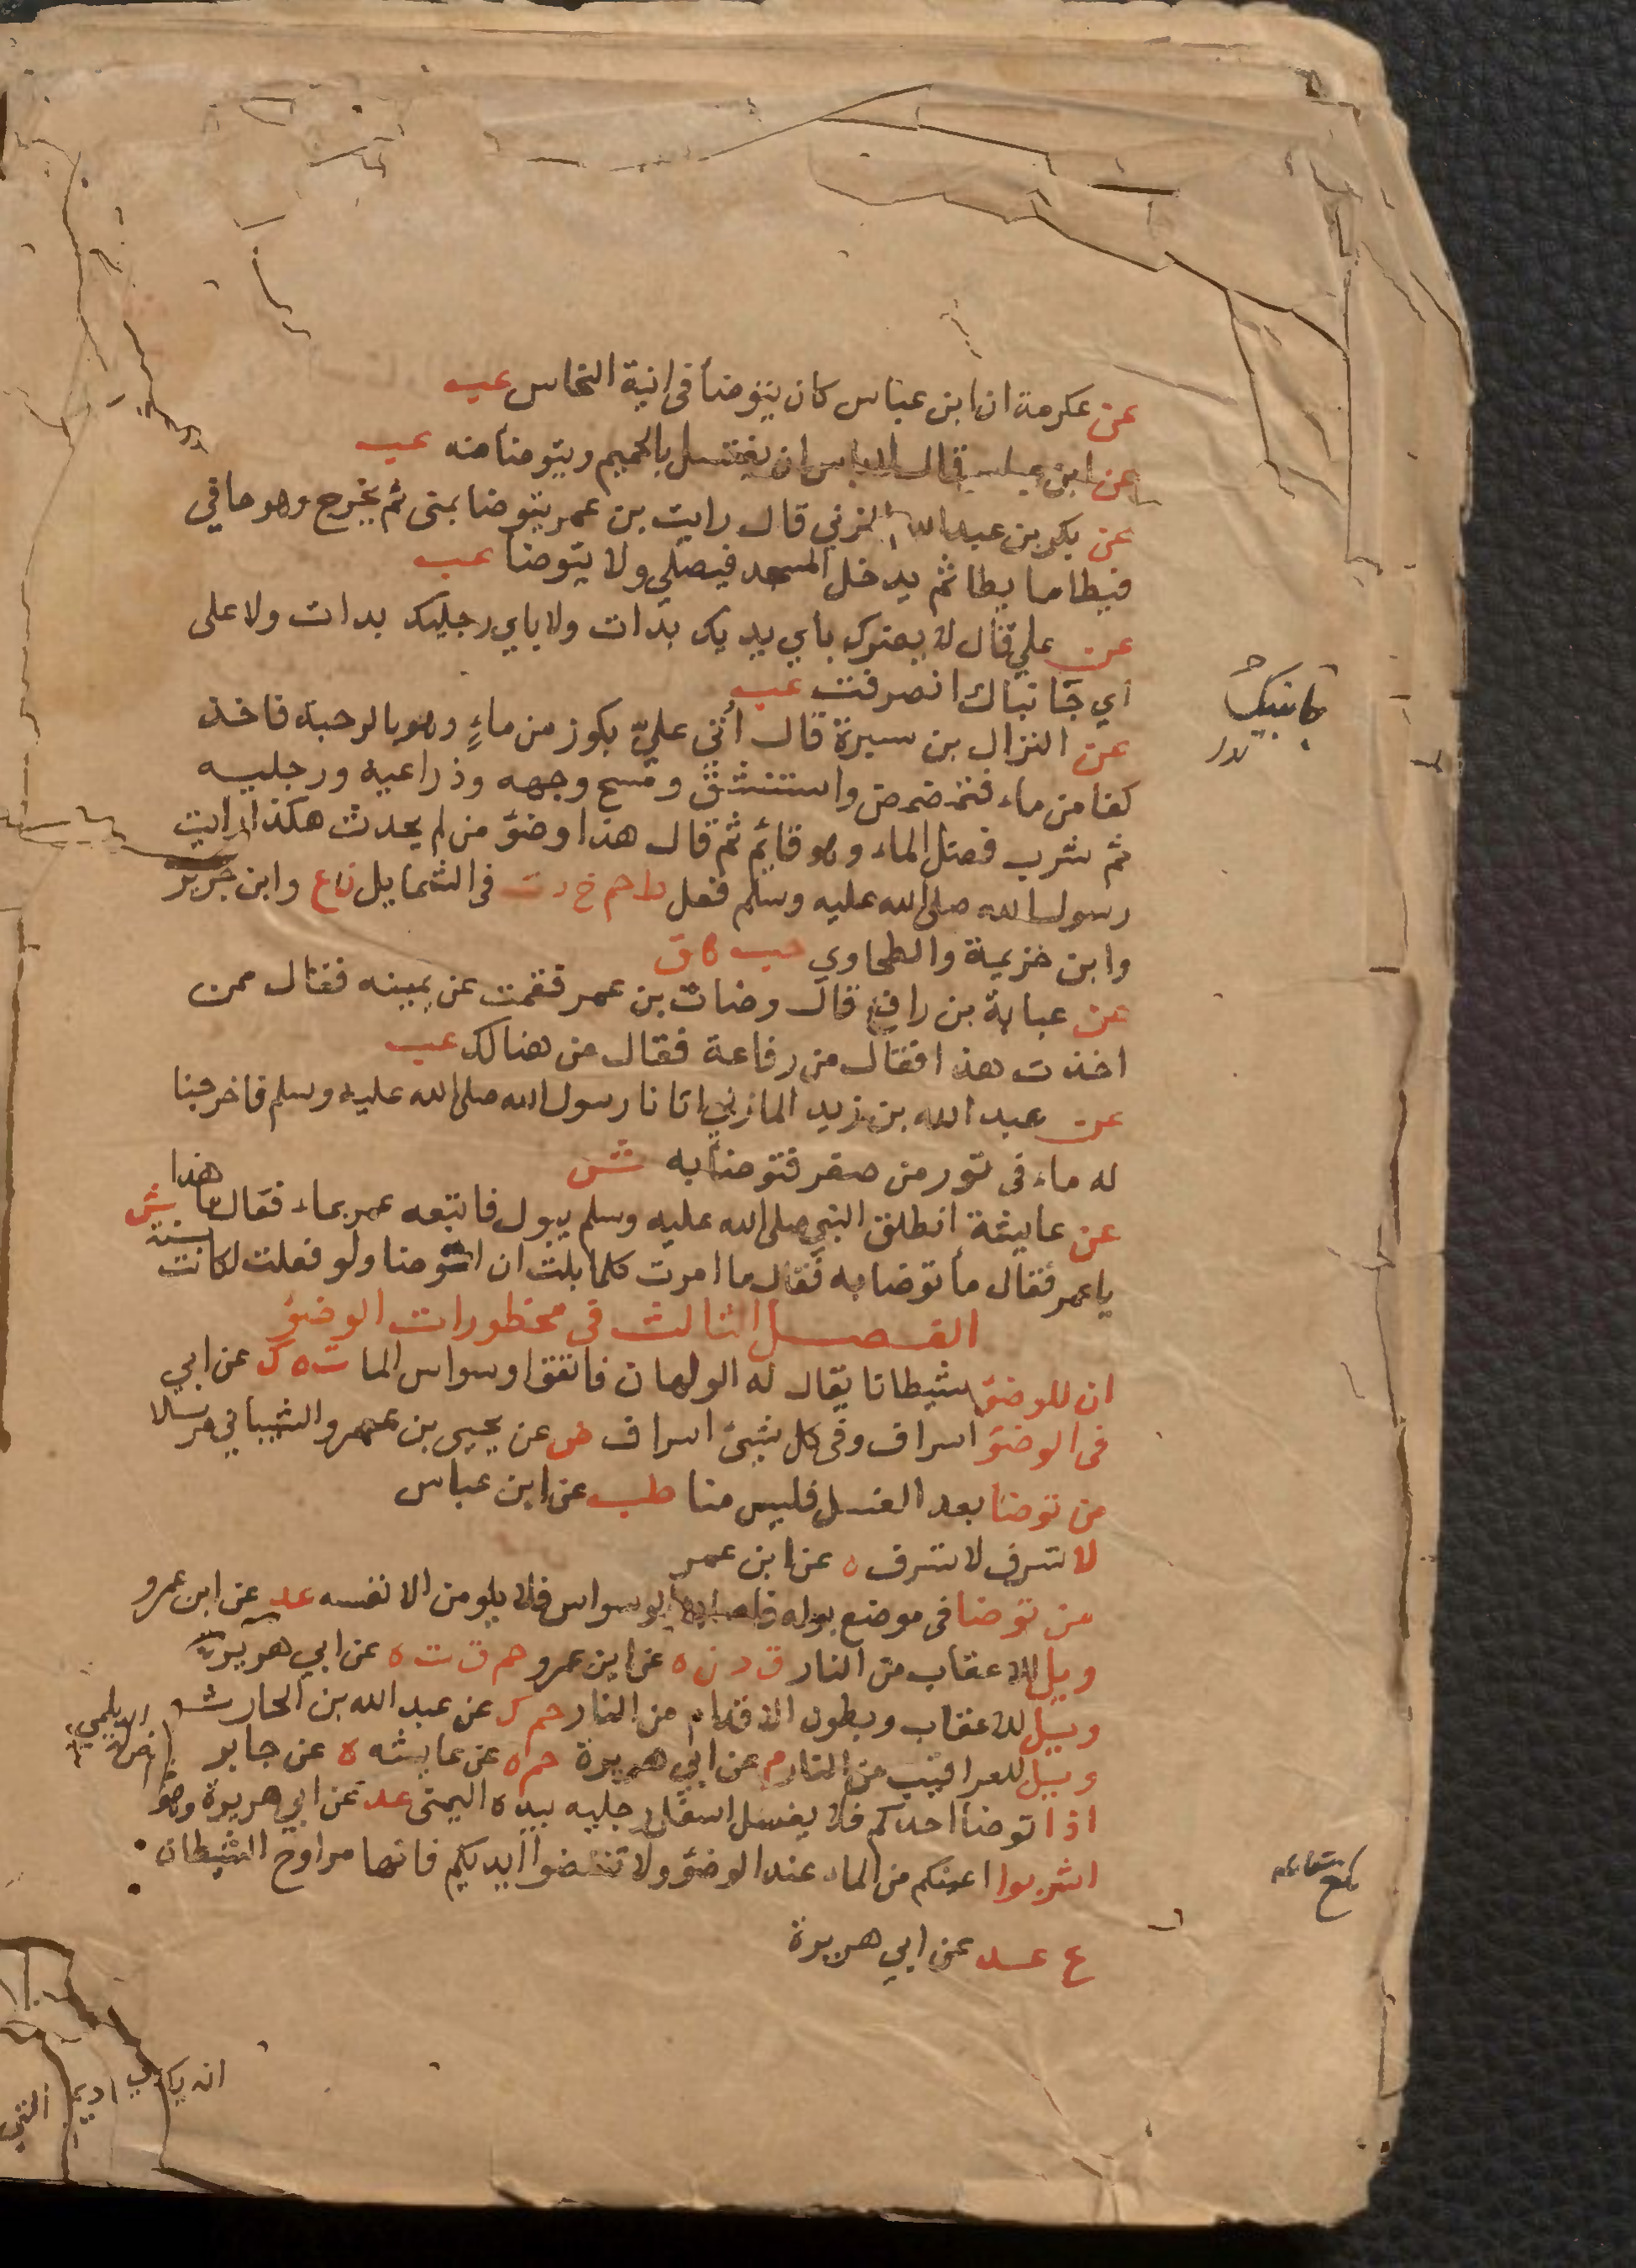 عن عكرمة ان ابن عباس كان يتوضأ فى انية النحاس عب
عن ابن عباس قال لا باس ان يغتسل بالحميم ويتوضأ منه عب
عن بكر بن عبد الله المزني قال رايت بن عمر يتوضا بمنى ثم يخرج وهو حافي
فيطا ما يطا ثم يدخل المسجد فيصلي ولا يتوضا عب
عن علي قال لا يضرك باي يديك بدات ولا باي رجليك بدات ولا على
اي جانباك انصرفت عب
جانبيك
عن النزال بن سبرة قال أتي عليّ بكوز من ماءٍ وهو بالرحبة فاخذ
كفا من ماء فتمضمض واستنشق ومسح وجهه وذراعيه ورجليه
ثم شرب فضل الماء وهو قائم ثم قال هذا وضؤ من لم يحدث هكذا رايت
رسول الله صلى الله عليه وسلم فعل ط حم خ د ت فى الشمايل ن ع وابن جرير
وابن خزيمة والطحاوي حب ق
عن عباية بن رافع قال وضات بن عمر فقمت عن يمينه فقال ممن
اخذت هذا فقال من رفاعة فقال من هنالك عب
عن عبد الله بن زيد المازني اتانا رسول الله صلى الله عليه وسلم فاخرجنا
له ماء فى تور من صفر فتوضأ به ش
عن عايشة انطلق النبي صلى الله عليه وسلم يبول فاتبعه عمر بماء فقال ما هذا
يا عمر فقال ما توضا به فقال ما امرت كلما بلت ان اتوضا ولو فعلت لكانت سنة ش
الفصل الثالث فى محظورات الوضؤ
ان للوضؤ شيطانا يقال له الولهان فاتقوا وسواس الما ت ه ك عن ابي
فى الوضؤ اسراف وفى كل شيئ اسراف ض عن يحيى بن عمرو الشيباني مرسلا
من توضا بعد الغسل فليس منا طب عن ابن عباس
لا تسرف لا تسرف ه عن ابن عمر
من توضا فى موضع بوله فاصابه الوسواس فلا يلومن الا نفسه عد عن ابن عمرو
ويل للاعقاب من النار ق د ن ه عن ابن عمرو حم ق ت ه عن ابي هريرة
ويل للاعقاب وبطون الاقدام من النار حم ك عن عبد الله بن الحارث
ويل للعراقيب من النار م عن ابي هريرة حم ه عن عايشه ه عن جابر
اذا توضأ احدكم فلا يغسل اسفل رجليه بيده اليمنى عد عن ابي هريرة وهو
الديلمي
اشربوا اعينكم من الماء عند الوضؤ ولا تنفضوا ايديكم فانها مراوح الشيطان
ع عد عن ابي هريرة